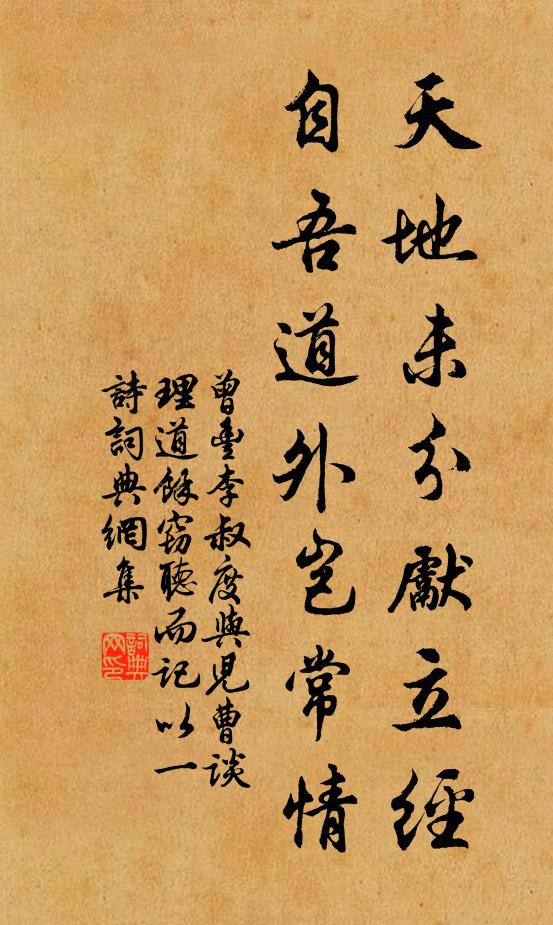 天地未分獻立經
自吾道外豈常情
曾豐李叔度與兒曹談
理道餘竊聽而記以一
詩詞典網集
詞典網印